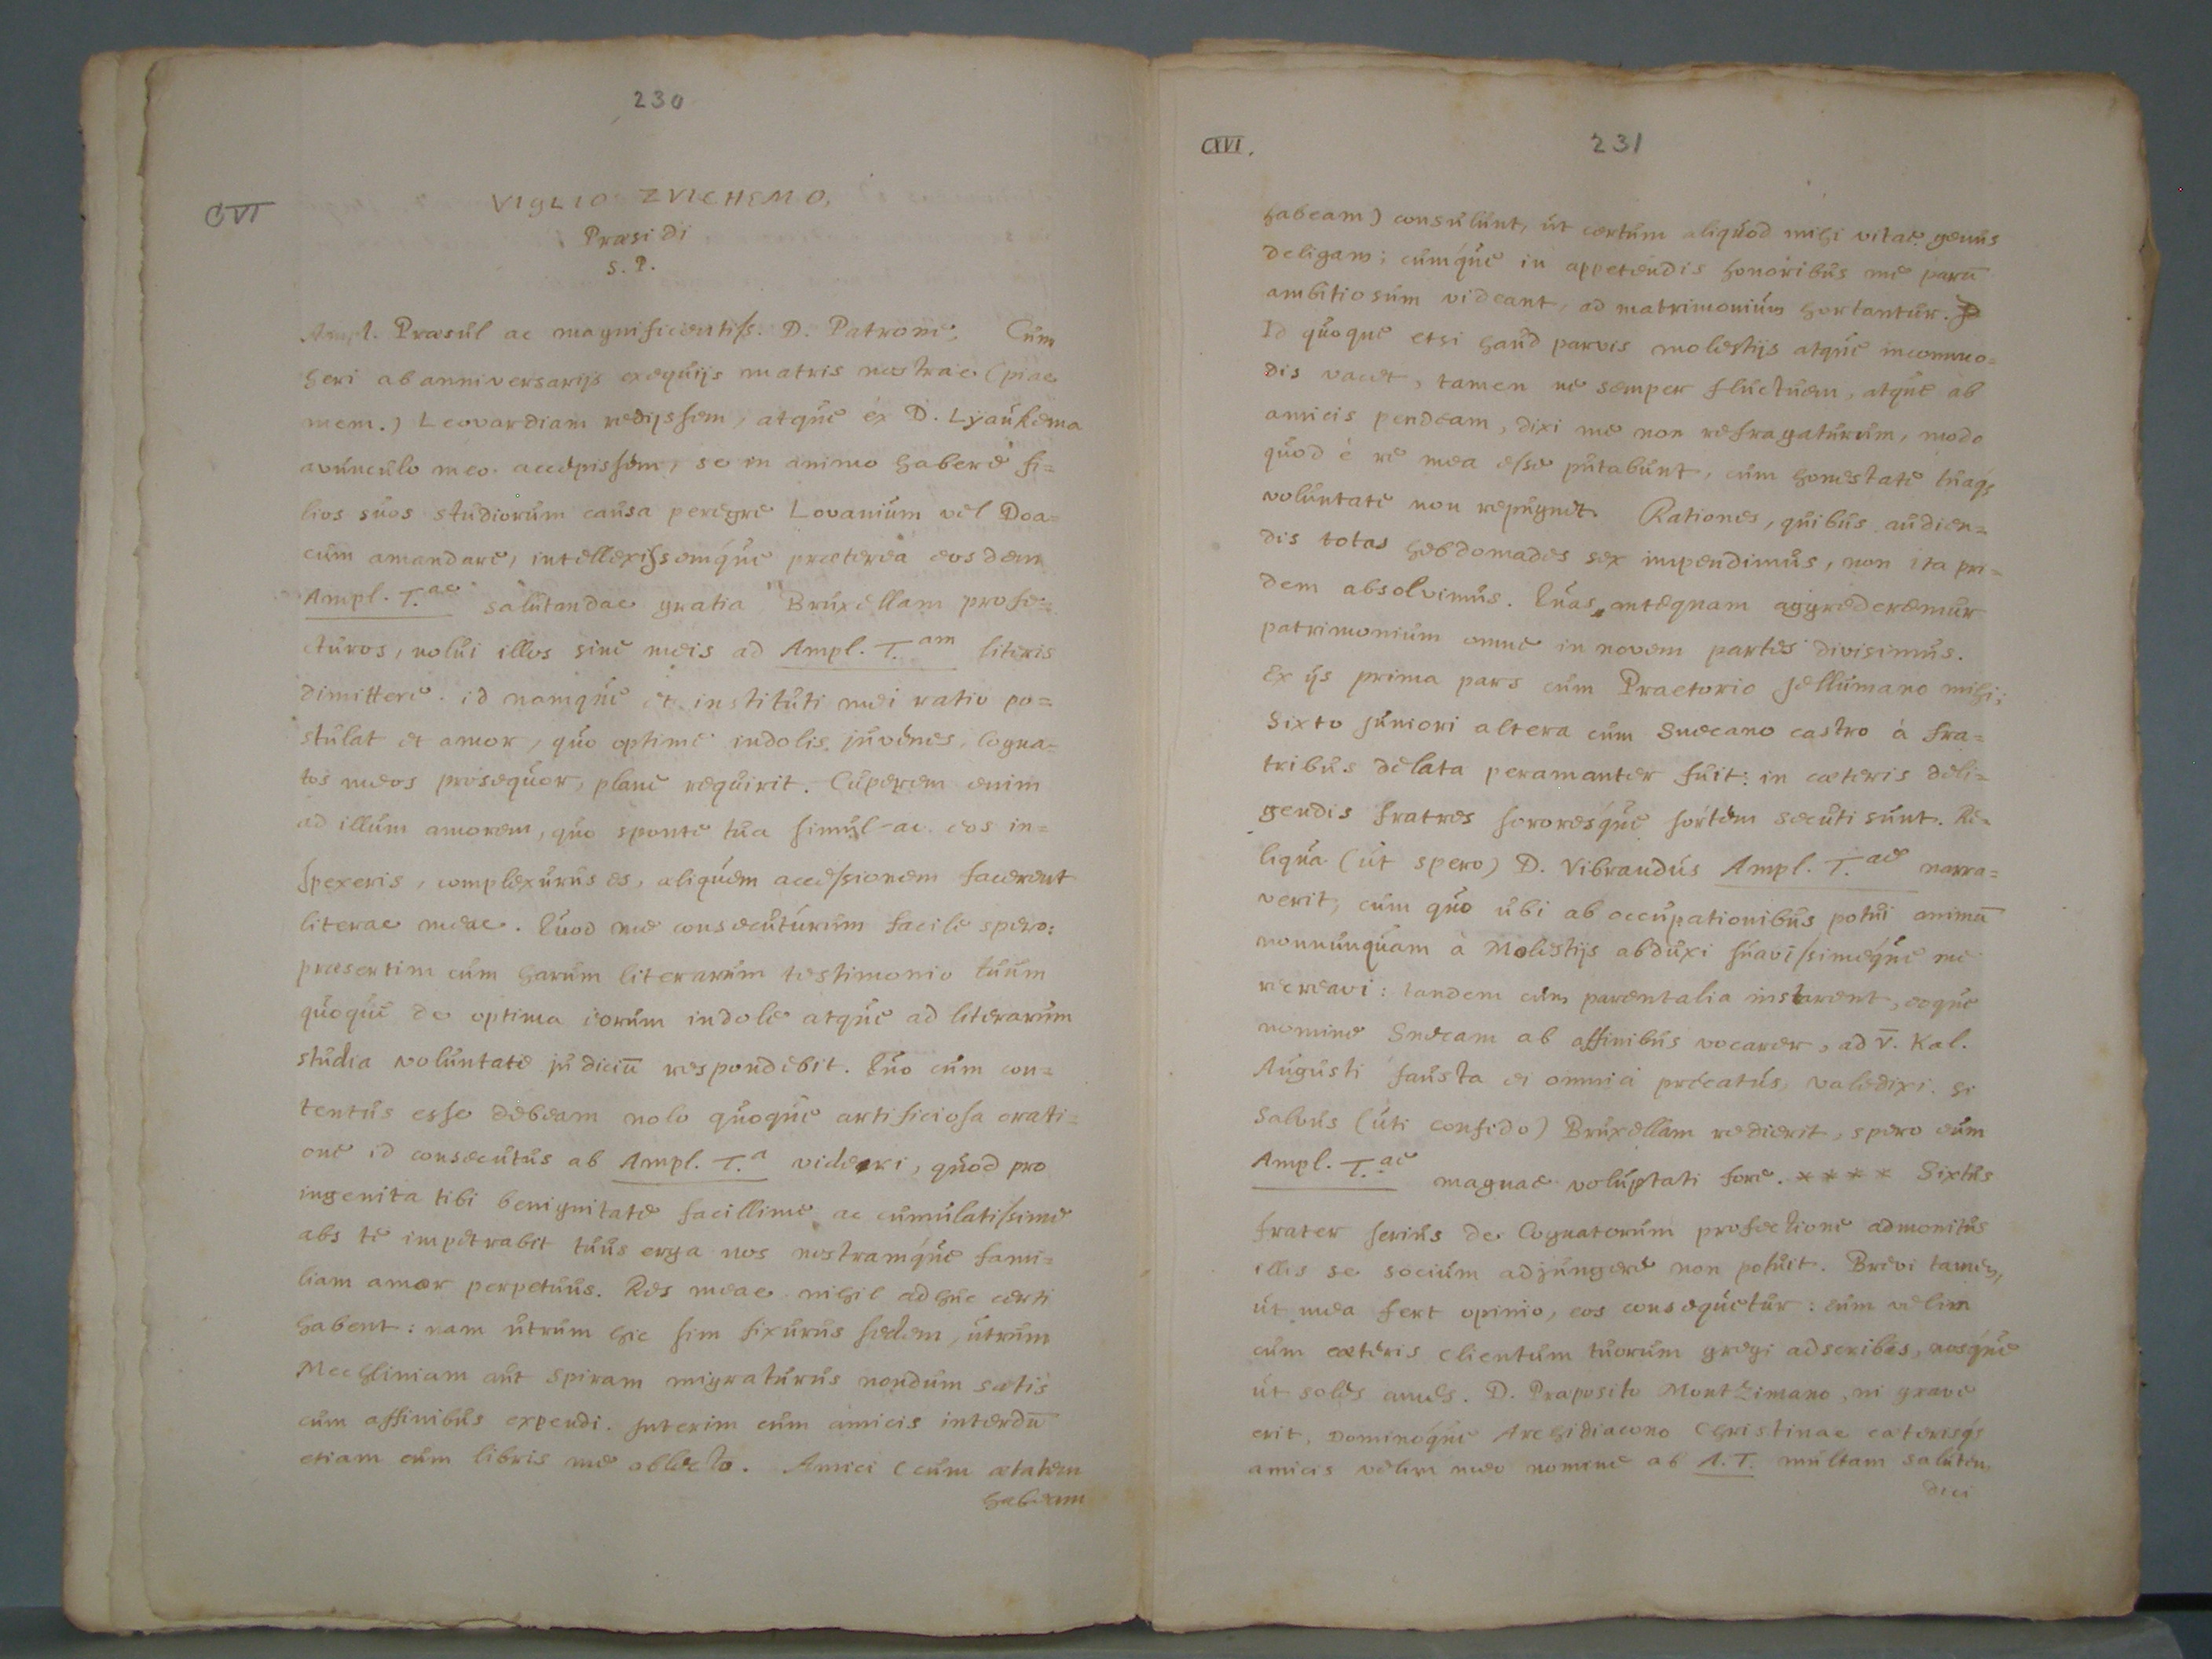 230
CVI
VIGLIO ZVICHEMO,
Præsidi
S. P.
Ampl. Præsul ac magnificentiss. D. Patrone, Cùm
heri ab anniversarijs exequijs matris nostrae (piae
mem.) Leovardiam redijssem, atque ex D. Lyaukema
avunculo meo accepissem, se in animo habere fi=
lios suos studiorum causa peregre Lovanium vel Doa=
cum amandare, intellexissemque præterea eosdem
Ampl. T.ae salutandae gratia Bruxellam profe=
cturos, nolui illos sine meis ad Ampl. T.am literis
dimittere. id namque et instituti mei ratio po=
stulat et amor, quo optime indolis juvenes, cogna=
tos meos prosequor, plane requirit. Cuperem enim
ad illum amorem, quo sponte tua simul-ac eos in=
spexeris, complexurus es, aliquem accessionem facerent
literae meae. Quod me consecuturum facile spero:
præsertim cum harum literarum testimonio tuum
quoque de optima eorum indole atque ad literarum
studia voluntate judiciū respondebit. Quo cum con=
tentus esse debeam nolo quoque artificiosa orati=
one id consecutus ab Ampl. T.a videri, quod pro
ingenita tibi benignitate facillime ac cumulatissime
abs te impetrabit tuus erga nos nostramque fami=
liam amor perpetuus. Res meae nihil adhuc certi
habent: nam utrum hic sim fixurus sedem, utrum
Mechliniam aut Spiram migraturus nondum satis
cum affinibus expendi. Interim cum amicis interdū
etiam cum libris me oblecto. Amici (cum ætatem
habeam
CXVI.
231
habeam) consulunt, ut certum aliquod mihi vitae genus
deligam; cumque in appetendis honoribus me parū
ambitiosum videant, ad matrimonium hortantur.
Id quoque etsi haud parvis molestijs atque incommo=
dis vacet, tamen ne semper fluctuem, atque ab
amicis pendeam, dixi me non refragaturum, modo
quod è re mea esse putabunt, cum honestate tuaqȝ
voluntate non repugnet. Rationes, quibus audien=
dis totas hebdomades sex impendimus, non ita pri=
dem absolvimus. Quas antequam aggrederemur
patrimonium omne in novem partes divisimus.
Ex ijs prima pars cum Praetorio Jellumano mihi;
Sixto juniori altera cum Snecano castro à fra=
tribus delata peramanter fuit: in cæteris deli=
gendis fratres sororesque sortem secuti sunt. Re=
liqua (ut spero) D. Vibrandus Ampl. T.ae narra=
verit, cum quo ubi ab occupationibus potui animū
nonnunquam à Molestijs abduxi suavissimeque me
recreavi: tandem cum parentalia instarent, eoque
nomine Snecam ab affinibus vocarer, ad v̄. Kal.
Augusti fausta ei omnia precatus valedixi. Si
salvus (uti confido) Bruxellam redierit, spero eum
Ampl. T.ae magnae voluptati fore. **** Sixtus
frater serius de Cognatorum profectione admonitus
illis se socium adjungere non potuit. Brevi tamen,
ut mea fert opinio, eos consequetur: eum velim
cum cæteris clientum tuorum gregi adscribas, nosque
ut soles ames. D. Præposito Montzimano, ni grave
erit, Dominoque Archidiacono Christinae cæterisqȝ
amicis velim meo nomine ab A. T. multam salutem
dici